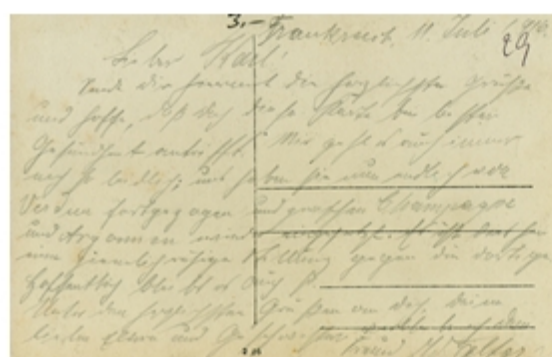 3.-
Frankreich, 11. Juli 1916.
29
Lieber Karl!
Sende dir hiermit die herzlichsten Grüße
und hoffe, daß dich diese Karte bei bester
Gesundheit antrifft. Mir geht es auch immer
noch so leidlich; uns haben sie nun endlich von
Verdun fortgezogen und zwischen Champagne
und Argonnen wieder eingesetzt. Es ist hier
eine ziemlich ruhige Stellung gegen die dortige
hoffentlich bleibt es auch so.
Unter den herzlichsten Grüßen an dich, deine
lieben Eltern und Geschwister
Freund